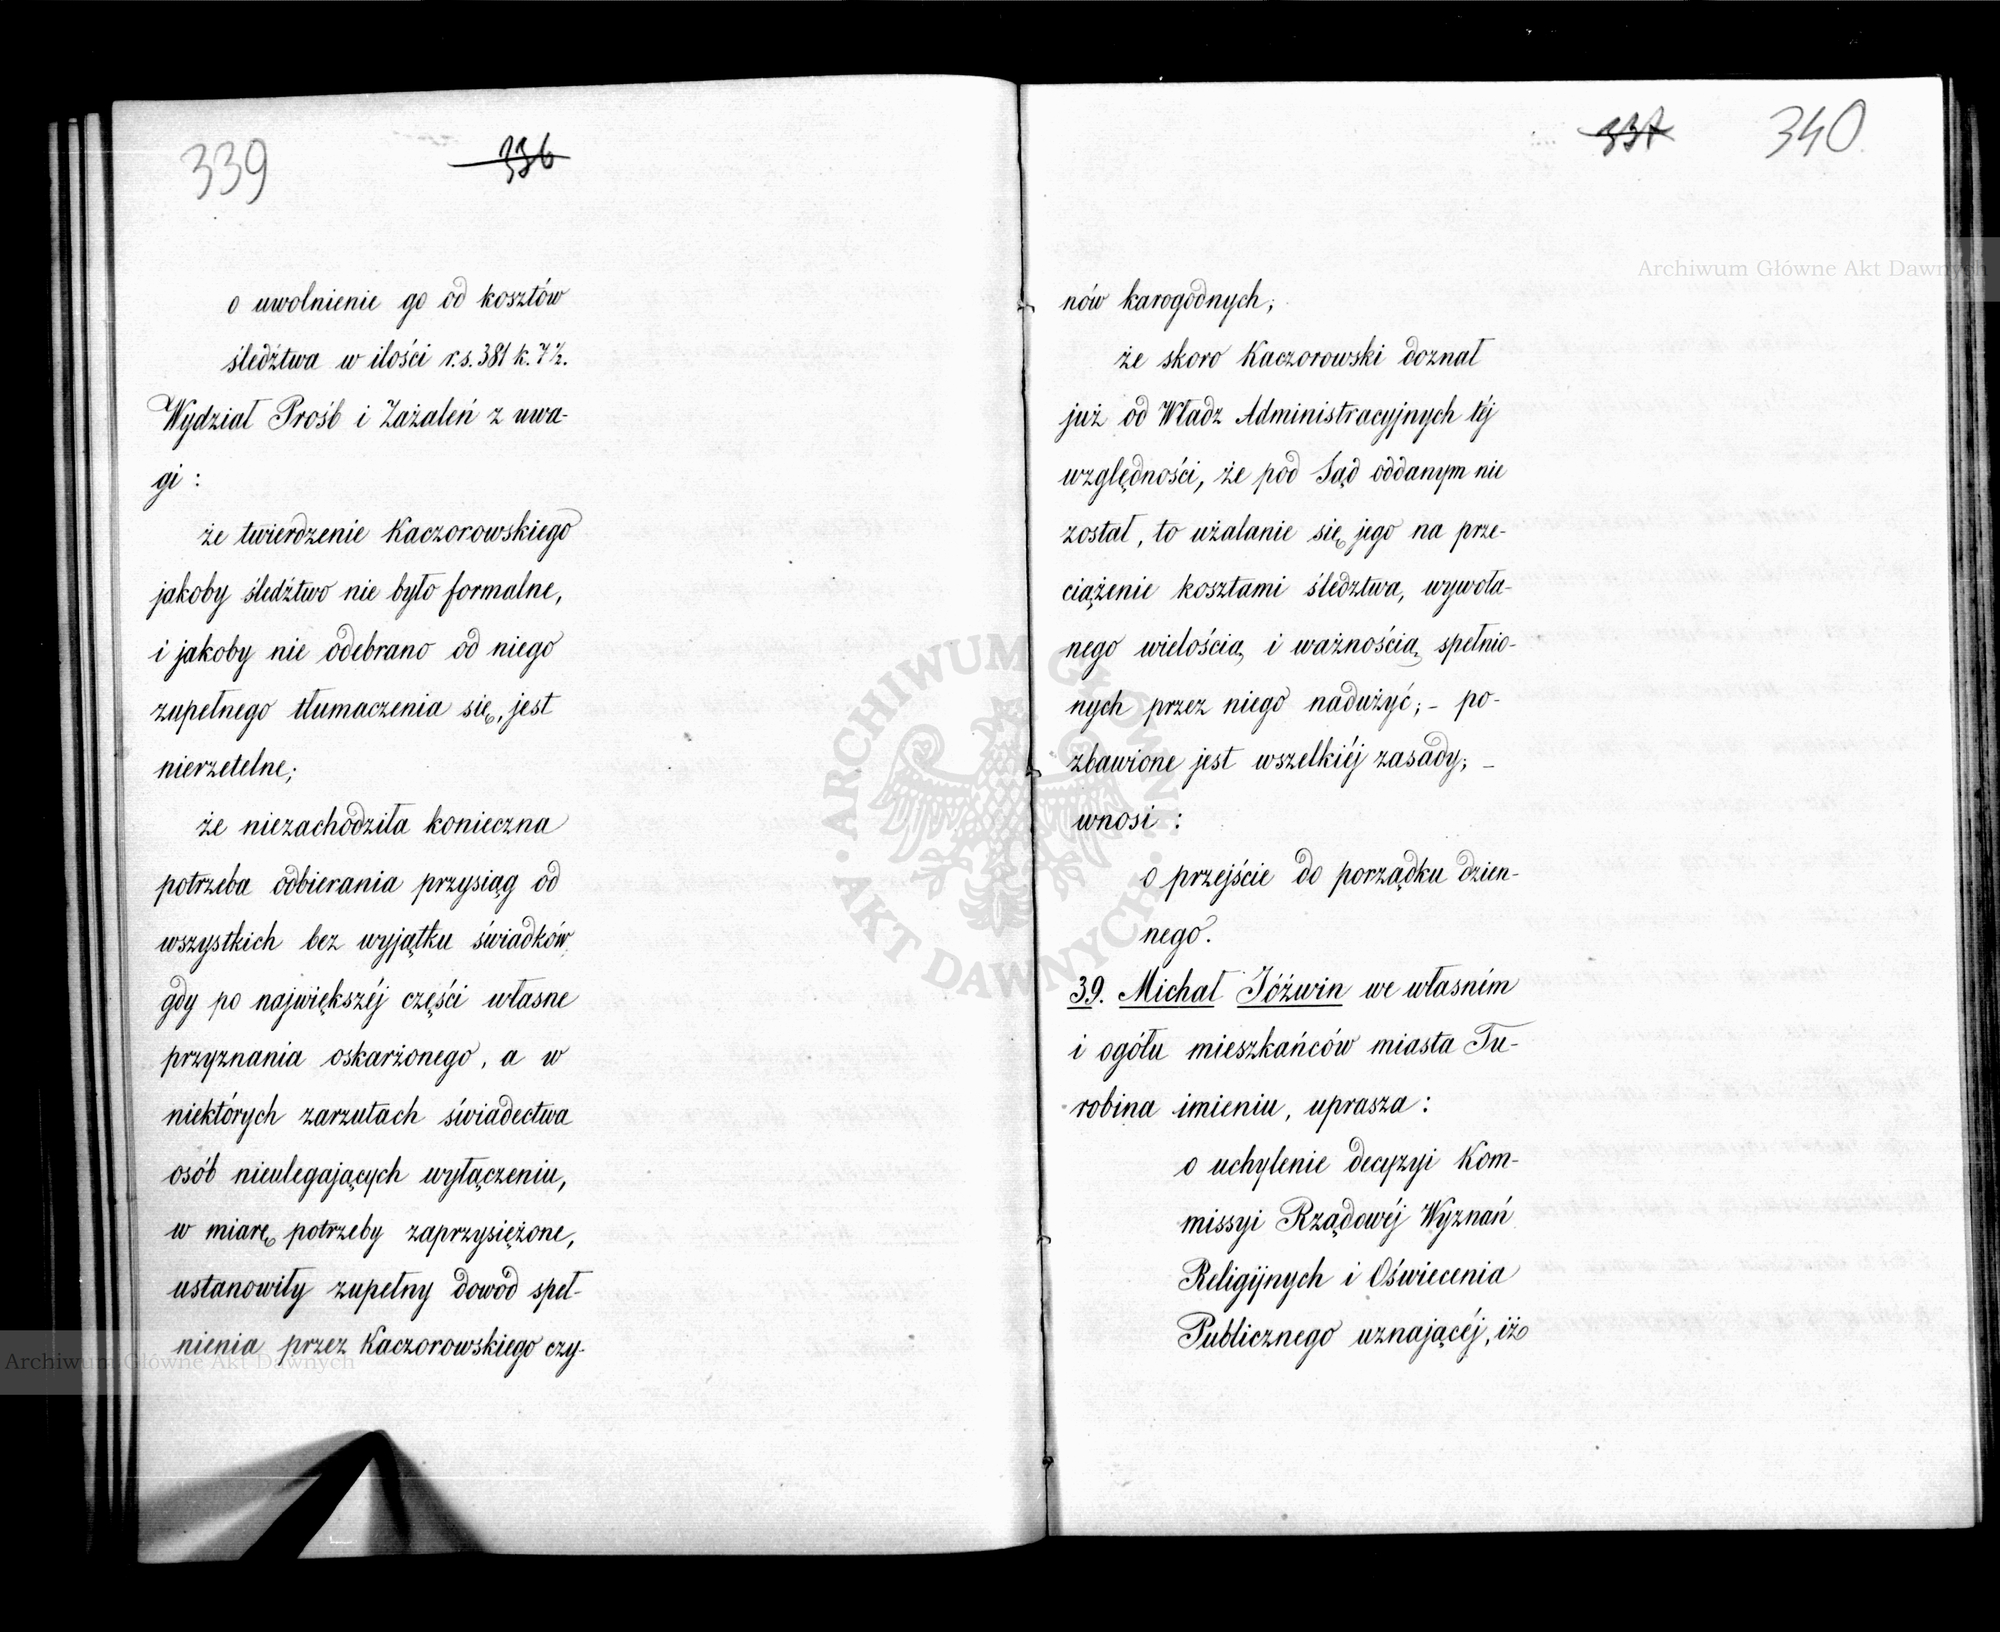 339
336
o uwolnienie go od kosztów
śledźtwa w ilości r.s. 381 k. 7½.
Wydział Prośb i Zażaleń z uwa-
gi :
że twierdzenie Kaczorowskiego
jakoby śledźtwo nie było formalne,
i jakoby nie odebrano od niego
zupełnego tłumaczenia się, jest
nierzetelne;
że niezachodziła konieczna
potrzeba odbierania przysiąg od
wszystkich bez wyjątku świadków,
gdy po największéj części własne
przyznania oskarżonego, a w
niektórych zarzutach świadectwa
osób nieulegających wyłączeniu,
w miarę potrzeby zaprzysiężone,
ustanowiły zupełny dowód speł-
nienia przez Kaczorowskiego czy-
337
340
nów karogodnych;
że skoro Kaczorowski doznał
już od Władz Administracyjnych téj
względności, że pod Sąd oddanym nie
został, to użalanie się jego na prze-
ciążenie kosztami śledztwa, wywoła-
nego wielością i ważnością spełnio-
nych przez niego nadużyć; – po-
zbawione jest wszelkiéj zasady; –
wnosi :
o przejście do porządku dzien-
nego.
39. Michał Jóźwin we własném
i ogółu mieszkańców miasta Tu-
robina imieniu, uprasza :
o uchylenie decyzyi Kom-
missyi Rządowéj Wyznań
Religijnych i Oświecenia
Publicznego uznającéj, iż
Archiwum Główne Akt Dawnych
Archiwum Główne Akt Dawnych
ARCHIWUM GŁÓWNE AKT DAWNYCH